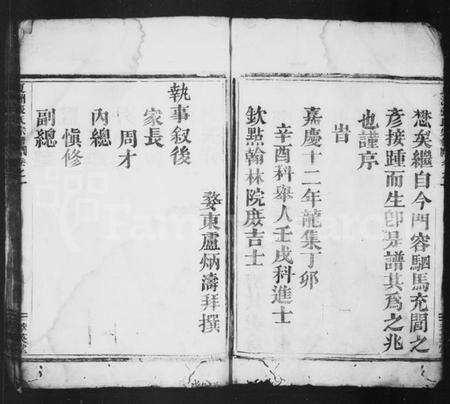 懋矣繼自今門容駟馬充閭之
彥接踵而生卽是譜其爲之兆
也謹序
旹
嘉慶十二年龍集丁卯
辛酉科舉人壬戌科進士
欽點翰林院庶吉士
婺東盧炳濤拜撰
執事叙後
家長
周才
內總
慎修
副總